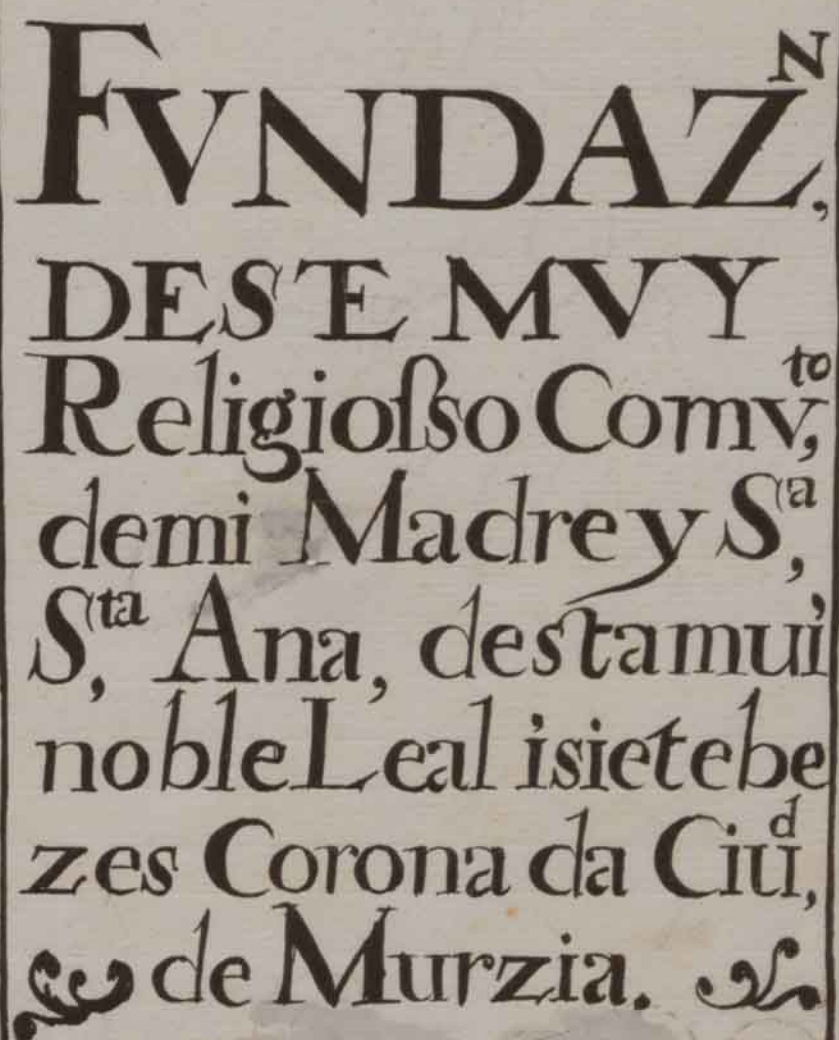 FVNDAZᴺ,
DESTE MVY
Religioſso Comvᵗᵒ,
demi Madre y Sᵃ,
Sᵗᵃ, Ana, destamui
noble Leal isietebe
zes Corona da Ciuᵈ,
de Murzia.